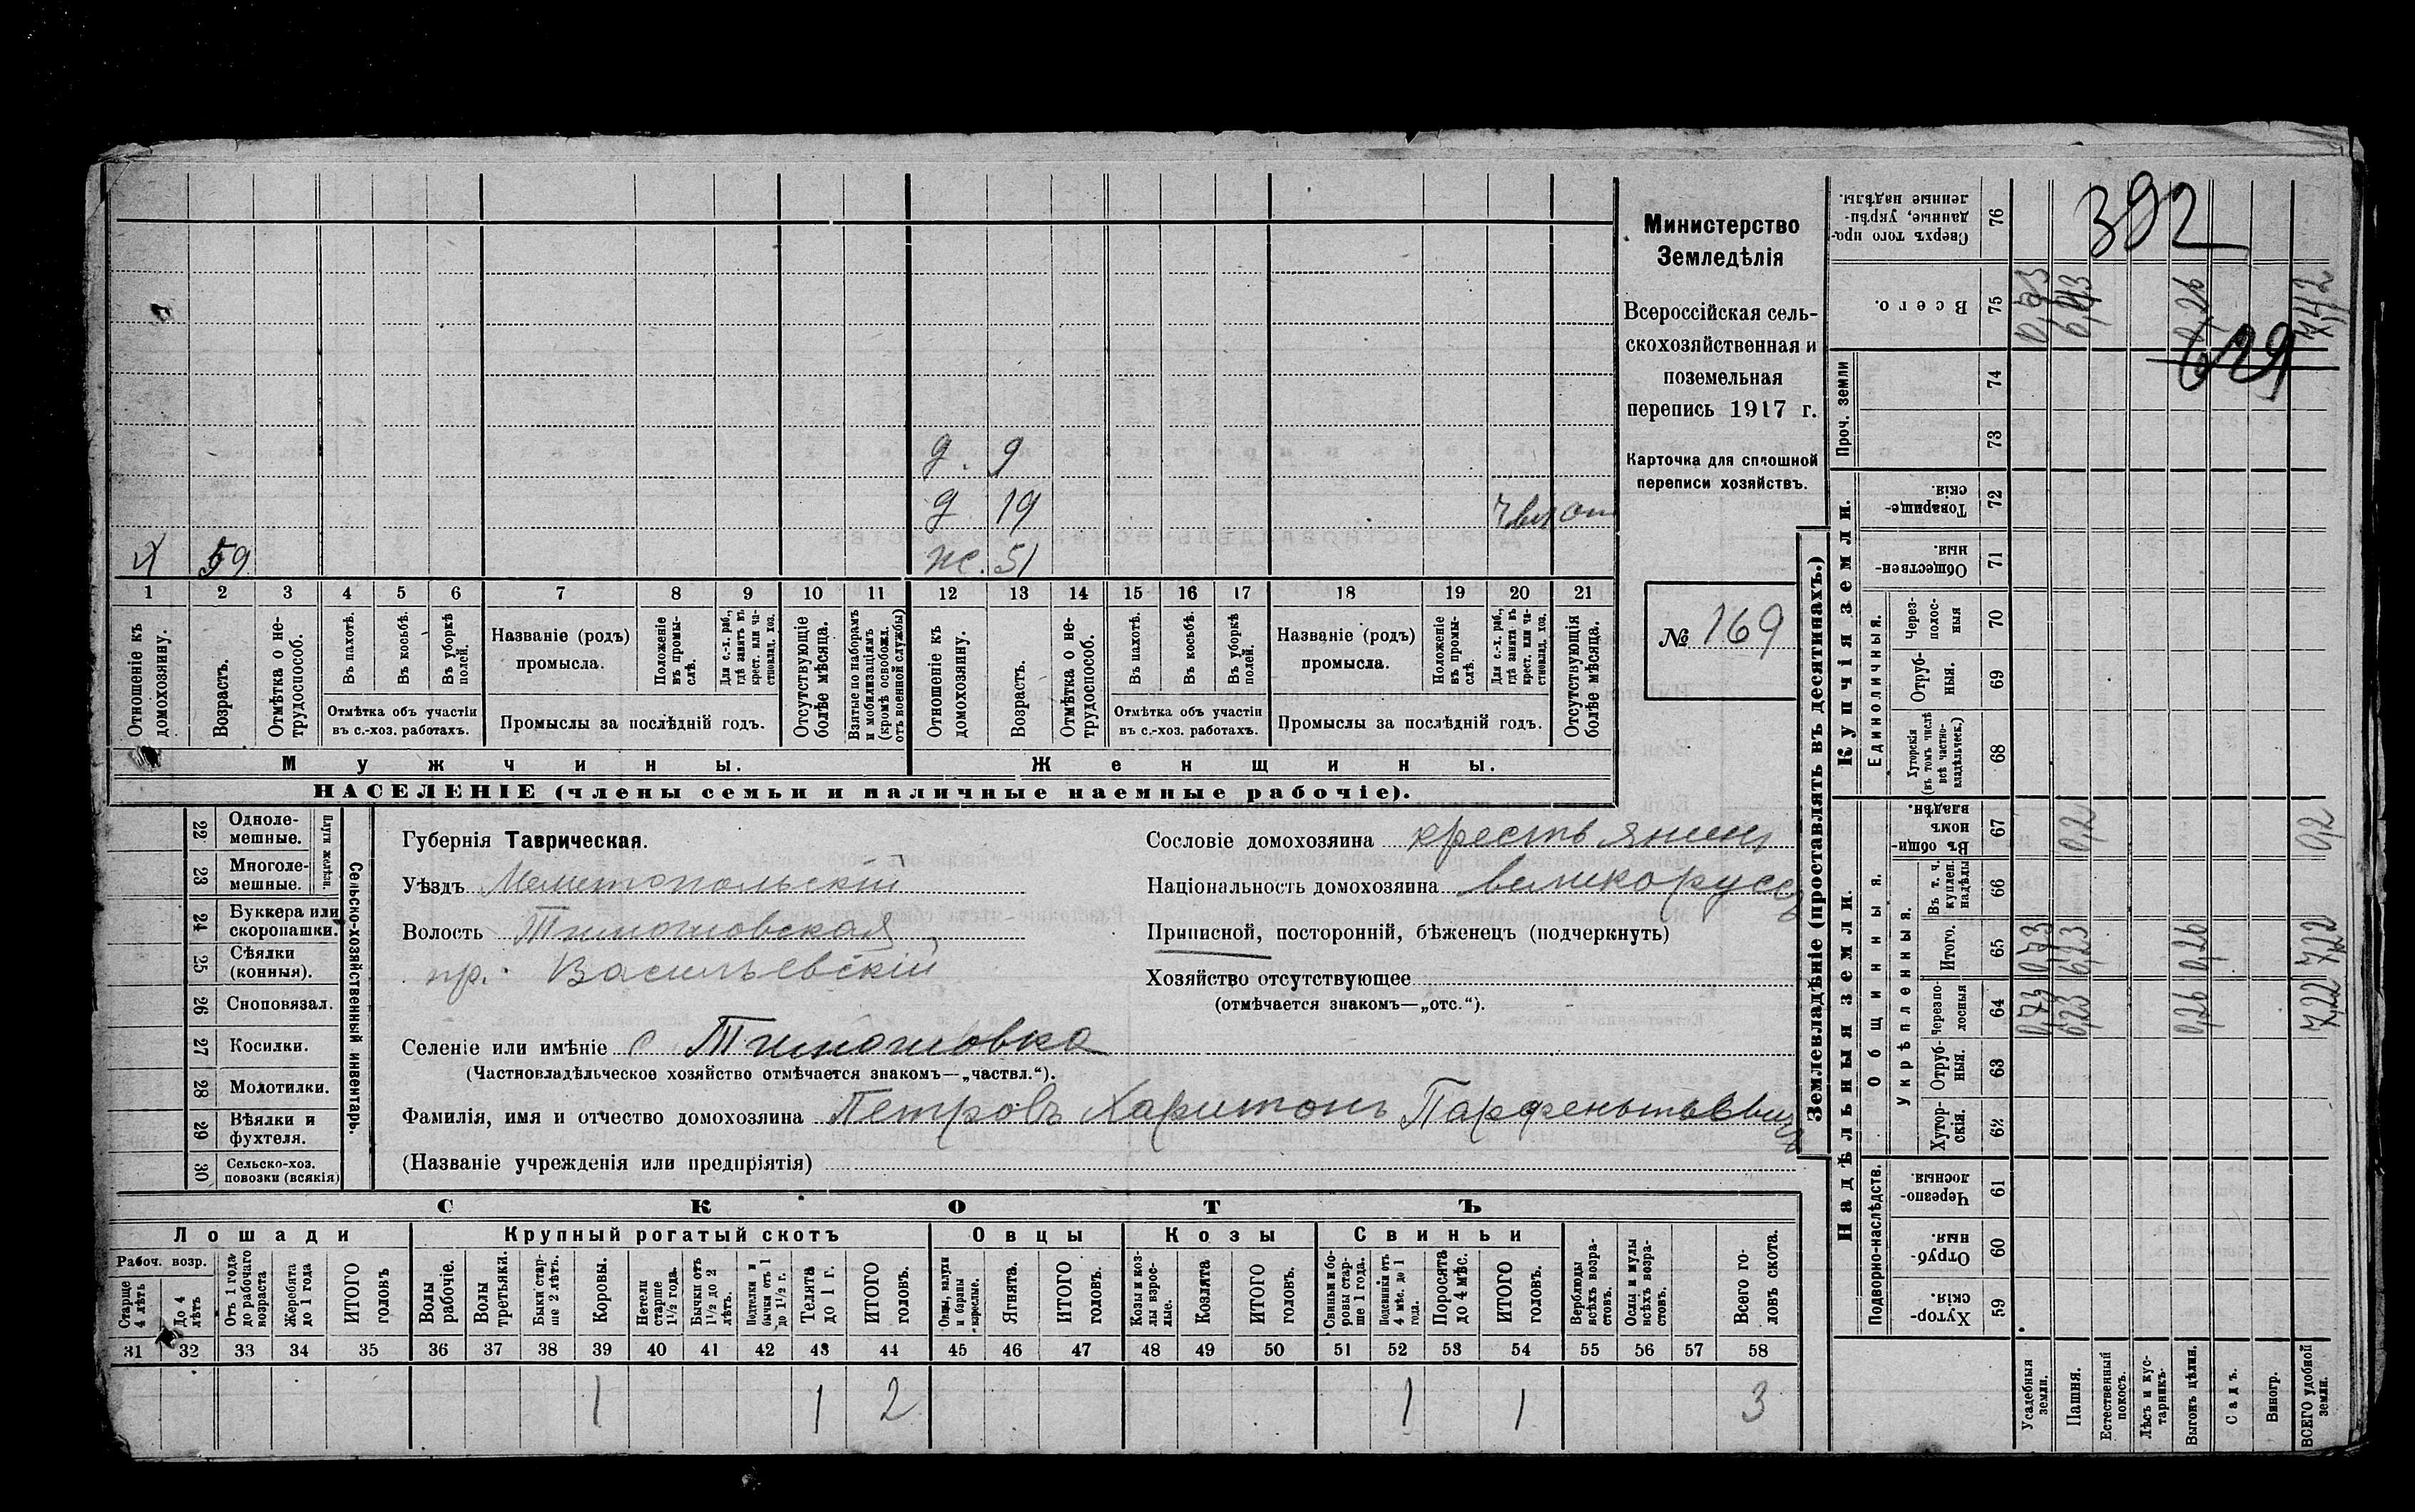 Министерство
Земледѣлія
Всероссійская сель-
скохозяйственная и
поземельная
перепись 1917 г.
Карточка для сплошной
переписи хозяйствъ.
№ 169
392
629
д. 9
д. 19
х 59
ж. 51
1 2 3 4 5 6 7 8 9 10 11 12 13 14 15 16 17 18 19 20 21
Отношеніе къ домохозяину.
Возрастъ.
Отмѣтка о не-трудоспособ.
Въ пахотѣ.
Въ косьбѣ.
Въ уборкѣ полей.
Отмѣтка объ участіи
въ с.-хоз. работахъ.
Названіе (родъ)
промысла.
Положеніе въ промы-слѣ.
Для с.-х. раб., гдѣ занятъ въ крест. или ча-стновлад. хоз.
Промыслы за послѣдній годъ.
Отсутствующіе болѣе мѣсяца.
Взятые по наборамъ и мобилизаціямъ (кромѣ освобожд. отъ военной службы)
Отношеніе къ домохозяину.
Возрастъ.
Отмѣтка о не-трудоспособ.
Въ пахотѣ.
Въ косьбѣ.
Въ уборкѣ полей.
Отмѣтка объ участіи
въ с.-хоз. работахъ.
Названіе (родъ)
промысла.
Положеніе въ промы-слѣ.
Для с.-х. раб., гдѣ занята въ крест. или ча-стновлад. хоз.
Промыслы за послѣдній годъ.
Отсутствующія болѣе мѣсяца.
Мужчины.
Женщины.
НАСЕЛЕНІЕ (члены семьи и наличные наемные рабочіе).
22 Одноле-мешные.
23 Многоле-мешные.
Плуги желѣзн.
24 Буккера или скоропашки.
25 Сѣялки (конныя).
26 Сноповязал.
27 Косилки.
28 Молотилки.
29 Вѣялки и фухтеля.
30 Сельско-хоз. повозки (всякія)
Сельско-хозяйственный инвентарь.
Губернія Таврическая.
Уѣздъ Мелитопольскій
Волость Тимошовская
пр. Васильевскій
Селеніе или имѣніе с Тимошовка
(Частновладѣльческое хозяйство отмѣчается знакомъ—„частвл.“).
Фамилія, имя и отчество домохозяина Петровъ Харитонъ Парфентьевичъ
(Названіе учрежденія или предпріятія)
Сословіе домохозяина крестьянинъ
Національность домохозяина великоруссъ
Приписной, посторонній, бѣженецъ (подчеркнуть)
Хозяйство отсутствующее
(отмѣчается знакомъ—„отс.“).
СКОТЪ
Лошади
Крупный рогатый скотъ
Овцы
Козы
Свиньи
Рабоч. возр.
Старше 4 лѣтъ
До 4 лѣтъ
Отъ 1 года до рабочаго возраста
Жеребята до 1 года
ИТОГО головъ
Волы рабочіе.
Волы третьяки.
Быки стар-ше 2 лѣтъ.
Коровы.
Нетели старше 1½ года.
Бычки отъ 1½ до 2 лѣтъ.
Подтелки и бычки отъ 1 до 1½ г.
Телята до 1 г.
ИТОГО головъ.
Овцы, валухи и бараны взрослые.
Ягнята.
ИТОГО головъ.
Козы и коз-лы взрос-лые.
Козлята
ИТОГО головъ.
Свиньи и бо-ровы стар-ше 1 года.
Подсвинки отъ 4 мѣс. до 1 года.
Поросята до 4 мѣс.
ИТОГО головъ.
Верблюды всѣхъ возра-стовъ.
Ослы и мулы всѣхъ возра-стовъ.
Всего го-ловъ скота.
31 32 33 34 35 36 37 38 39 40 41 42 43 44 45 46 47 48 49 50 51 52 53 54 55 56 57 58
1 1 2 1 1 3
Землевладѣніе (проставлять въ десятинахъ.)
Надѣльныя земли.
Купчія земли.
Проч. земли
Подворно-наслѣдств.
Общинныя.
Укрѣпленныя.
Единоличныя.
Хутор-скія. 59
Отруб-ныя. 60
Черезпо-лосныя. 61
Хутор-скія. 62
Отруб-ныя. 63
Черезпо-лосныя 64
Итого. 65
Въ т. ч. куплен. надѣлы 66
Въ общи-номъ владѣн. 67
Хуторскія (въ томъ числѣ всѣ частно-владѣльческ.) 68
Отруб-ныя. 69
Через-полос-ныя 70
Обществен-ныя. 71
Товарище-скія. 72
73
74
Всего. 75
Сверхъ того про-данные, укрѣп-ленные надѣлы. 76
Усадебныя земли. 0,73 0,73
Пашня. 6,23 6,23 0,2
Естественный покосъ.
Лѣсъ и кус-тарникъ.
Выгонъ цѣлин. 0,26 0,26 0,26
Садъ.
Виногр.
ВСЕГО удобной земли. 7,22 7,22 0,2 7,42